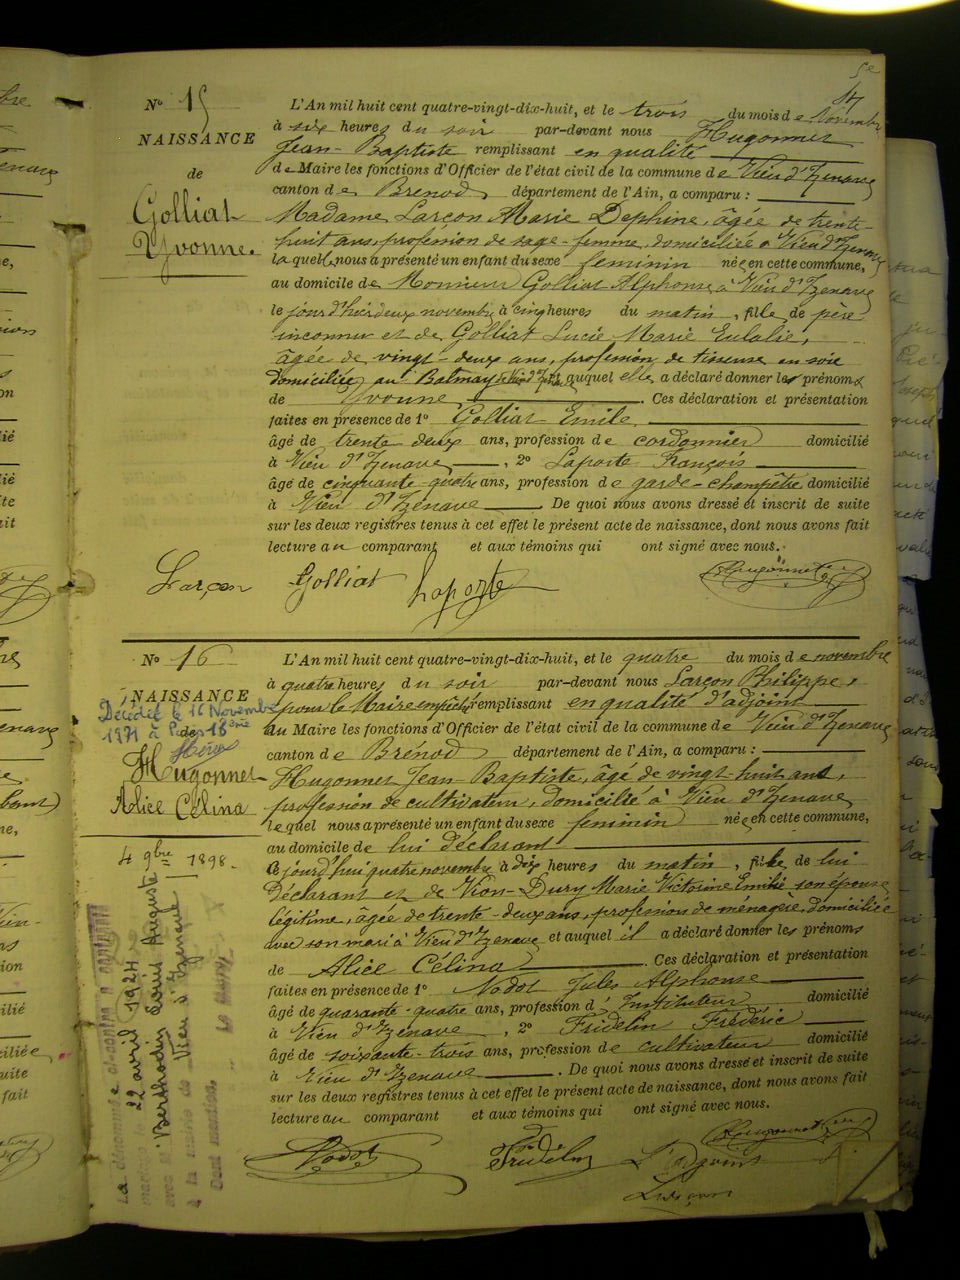 5e
17
No 15
NAISSANCE
de
Golliat
Yvonne.
L'An mil huit cent quatre-vingt-dix-huit, et le trois du mois de novembre
à six heures du soir par-devant nous Hugonnet
Jean-Baptiste remplissant en qualité
de Maire les fonctions d'Officier de l'état civil de la commune de Vieu d'Izenave
canton de Brénod, département de l'Ain, a comparu :
Madame Larçon Marie Delphine, âgée de trente-
huit ans, profession de sage-femme, domiciliée à Vieu d'Izenave
laquelle nous a présenté un enfant du sexe féminin née en cette commune,
au domicile de Monsieur Golliat Alphonse, à Vieu d'Izenave
le jour d'hier deux novembre à cinq heures du matin, fille de père
inconnu et de Golliat Lucie Marie Eulalie,
âgée de vingt-deux ans, profession de tisseuse en soie
domiciliée au Balmay de Vieu d'Izenave auquel elle a déclaré donner les prénoms
de Yvonne. Ces déclaration et présentation
faites en présence de 1o Golliat Emile
âgé de trente deux ans, profession de cordonnier domicilié
à Vieu d'Izenave, 2o Laporte François
âgé de cinquante-quatre ans, profession de garde-champêtre domicilié
à Vieu d'Izenave. De quoi nous avons dressé et inscrit de suite
sur les deux registres tenus à cet effet le présent acte de naissance, dont nous avons fait
lecture au comparant et aux témoins qui ont signé avec nous.
Larçon Golliat Laporte Hugonnet
No 16
NAISSANCE
de
Décédée le 16 Novembre
1971 à Paris 18ème
Hugonnet
Alice Célina
4 9bre 1898.
La dénommée ci-contre a contracté
mariage 22 avril 1924
avec M Berthodin Louis Auguste
à la mairie de Vieu d'Izenave
Dont mention. Le Maire
L'An mil huit cent quatre-vingt-dix-huit, et le quatre du mois de novembre
à quatre heures du soir par-devant nous Larçon Philippe,
pour le Maire empêché remplissant en qualité d'adjoint
au Maire les fonctions d'Officier de l'état civil de la commune de Vieu d'Izenave
canton de Brénod, département de l'Ain, a comparu :
Hugonnet Jean-Baptiste, âgé de vingt-huit ans,
profession de cultivateur, domicilié à Vieu d'Izenave
lequel nous a présenté un enfant du sexe féminin née en cette commune,
au domicile de lui déclarant
ce jourd'hui quatre novembre à dix heures du matin, fille de lui
déclarant et de Vion-Dury Marie Victorine Emilie son épouse
légitime, âgée de trente-deux ans, profession de ménagère, domiciliée
avec son mari à Vieu d'Izenave et auquel il a déclaré donner les prénoms
de Alice Célina. Ces déclaration et présentation
faites en présence de 1o Nodot Jules Alphonse
âgé de quarante-quatre ans, profession d'Instituteur domicilié
à Vieu d'Izenave, 2o Fridelin Frédéric
âgé de soixante-trois ans, profession de cultivateur domicilié
à Vieu d'Izenave. De quoi nous avons dressé et inscrit de suite
sur les deux registres tenus à cet effet le présent acte de naissance, dont nous avons fait
lecture au comparant et aux témoins qui ont signé avec nous.
Hugonnet
Nodot Fridelin L'adjoint
Larçon